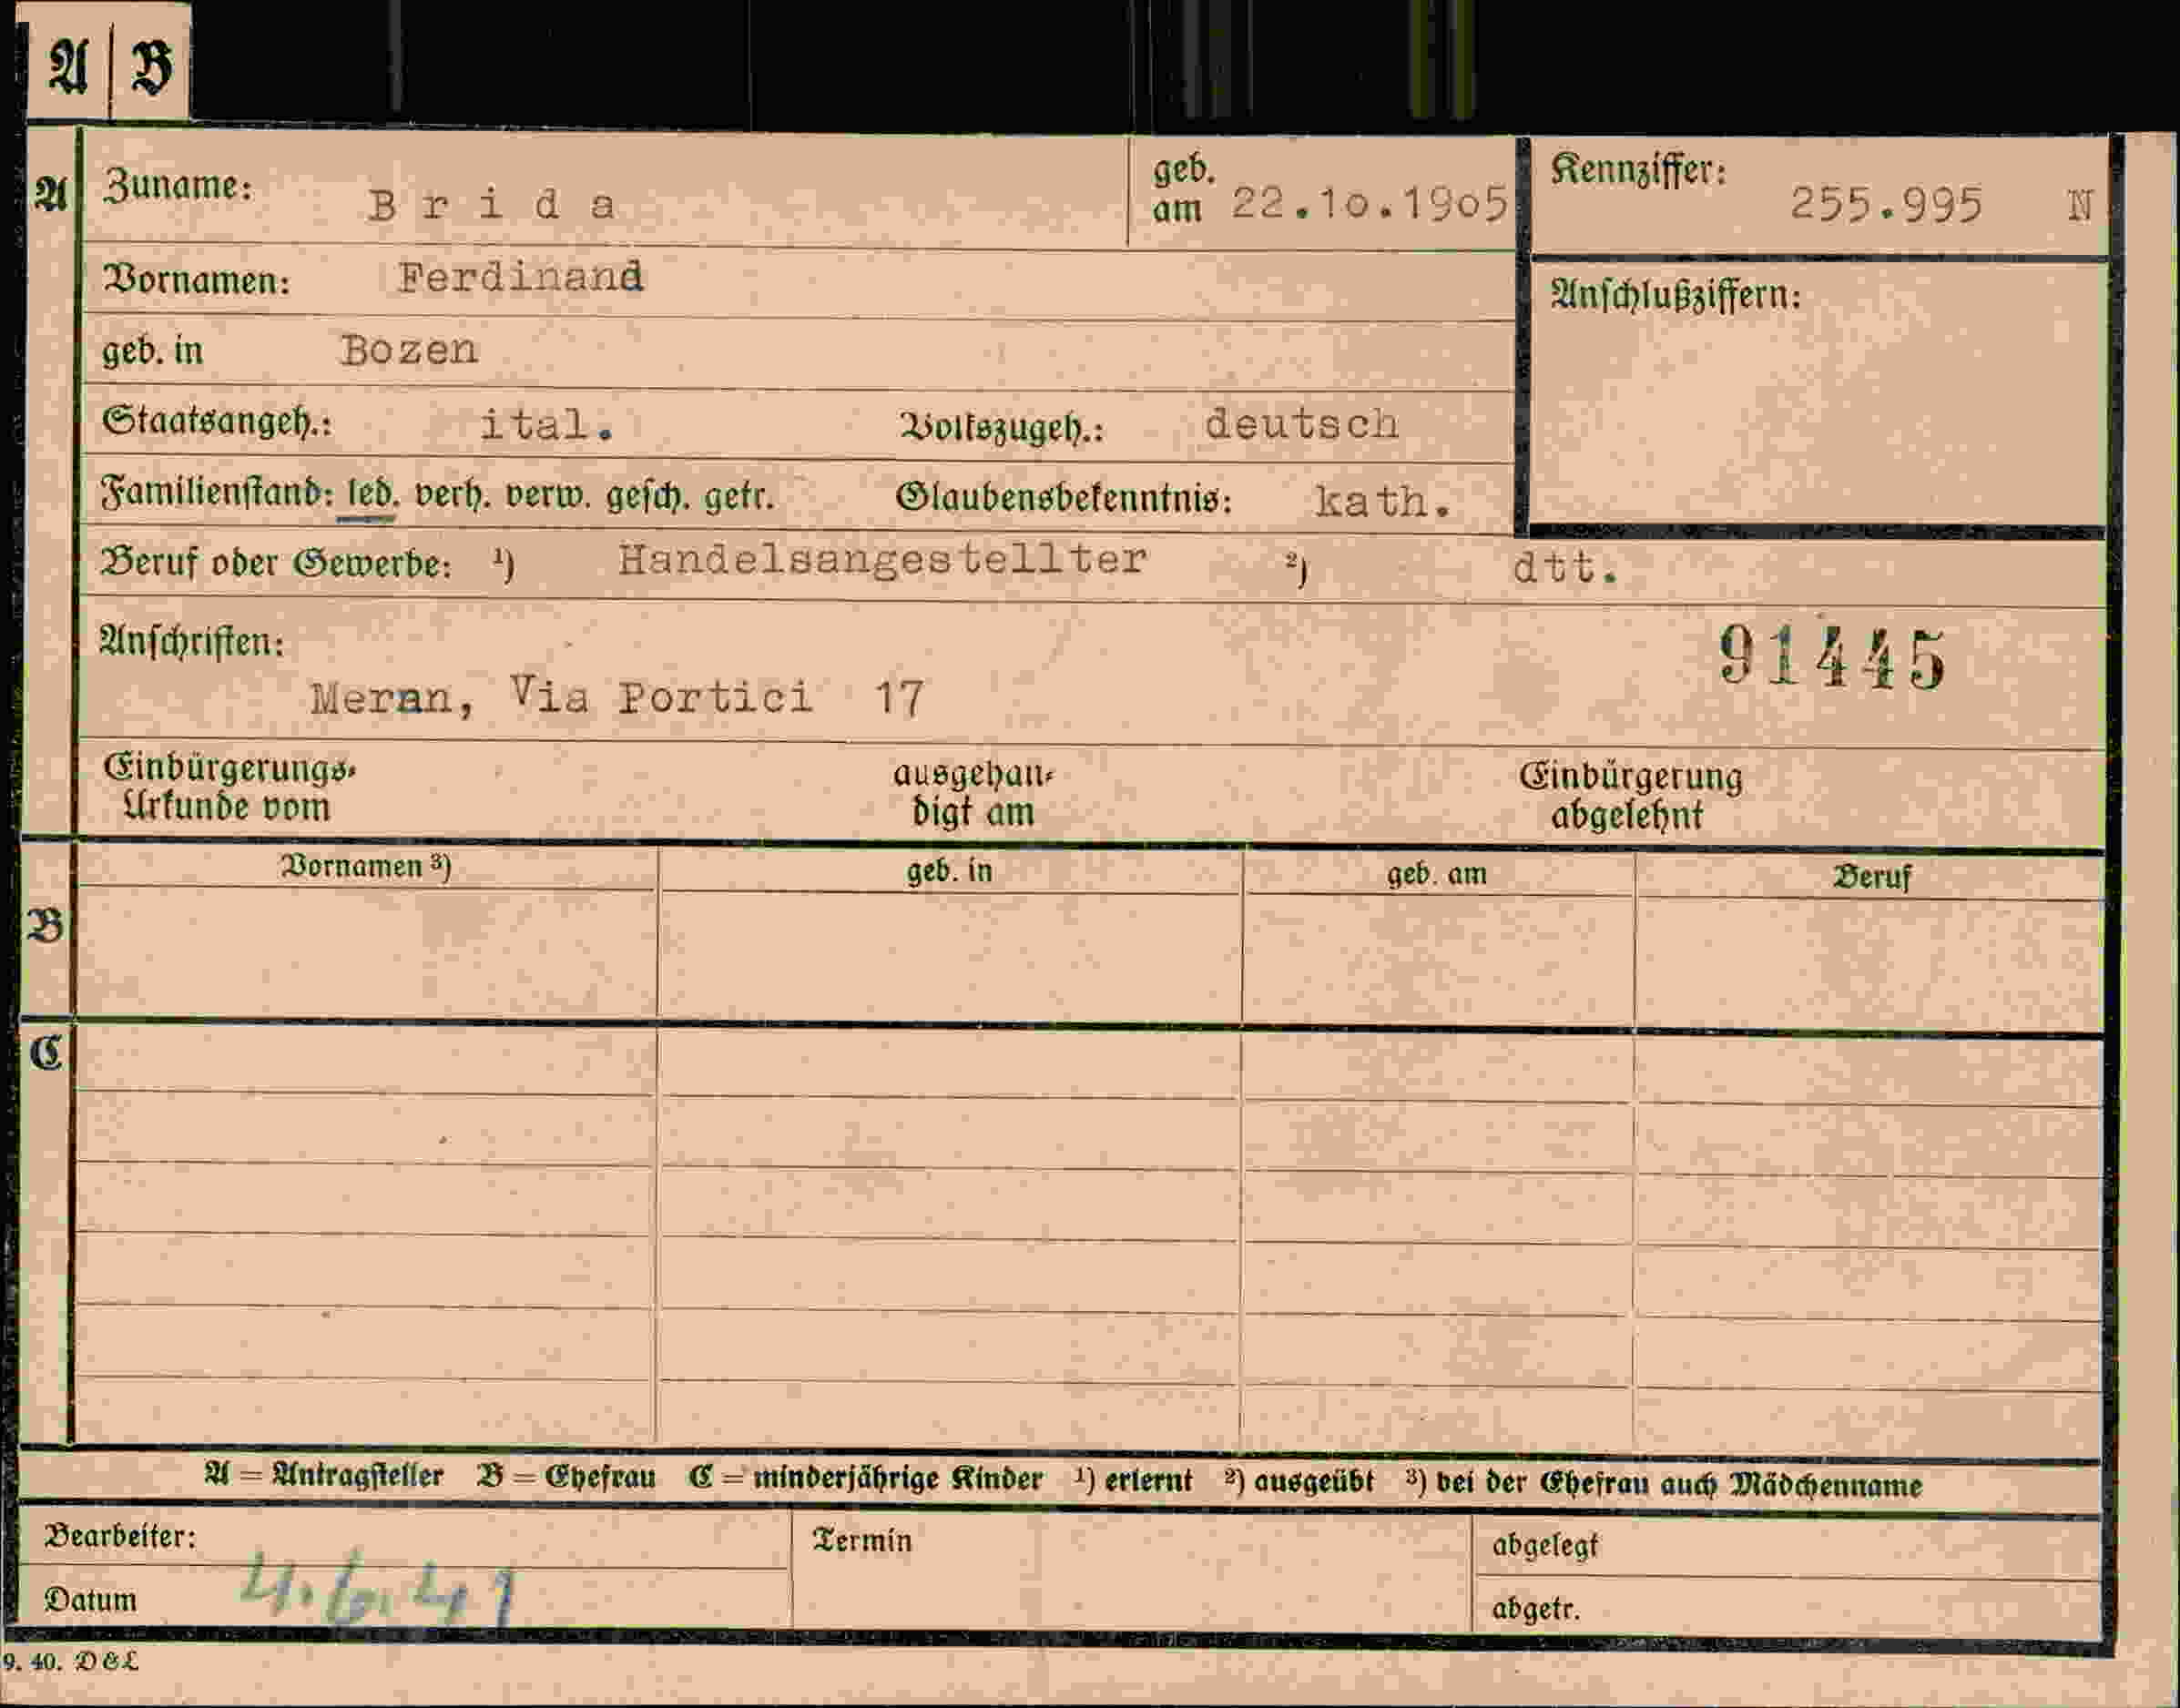 A | B
A Zuname: Brida geb. am 22.10.1905 Kennziffer: 255.995 N
Vornamen: Ferdinand Anschlußziffern:
geb. in Bozen
Staatsangeh.: ital. Volkszugeh.: deutsch
Familienstand: led. verh. verw. gesch. getr. Glaubensbekenntnis: kath.
Beruf oder Gewerbe: 1) Handelsangestellter 2) dtt.
Anschriften: 91445
Meran, Via Portici 17
Einbürgerungs- ausgehän- Einbürgerung
Urkunde vom digt am abgelehnt
Vornamen 3) geb. in geb. am Beruf
B
C
A = Antragsteller B = Ehefrau C = minderjährige Kinder 1) erlernt 2) ausgeübt 3) bei der Ehefrau auch Mädchenname
Bearbeiter: Termin abgelegt
Datum 4.6.41 abgetr.
9. 40. D&L